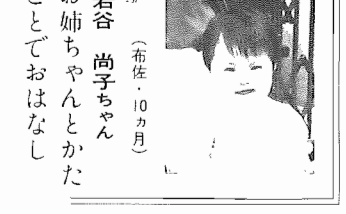 （布佐・10ヵ月）
岩谷　尚子ちゃん
お姉ちゃんとかた
ことでおはなし